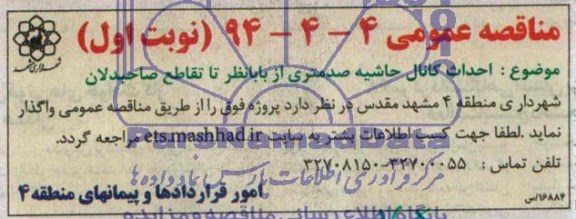 مناقصه عمومی ۴ - ۴ - ۹۴ (نوبت اول)
موضوع : احداث کانال حاشیه صدمتری از بابانظر تا تقاطع صاحبدلان
شهرداری منطقه ۴ مشهد مقدس در نظر دارد پروژه فوق را از طریق مناقصه عمومی واگذار
نماید .لطفا جهت کسب اطلاعات بیشتر به سایت ets.mashhad.ir مراجعه گردد.
تلفن تماس : ۳۲۷۰۰۰۵۵-۳۲۷۰۸۱۵۰
امور قراردادها و پیمانهای منطقه ۴
۱۶۸۸۴/س
ParsNamadData
مرکز فرآوری اطلاعات پارس نماد داده ها
پایگاه اطلاع رسانی مناقصه و مزایده